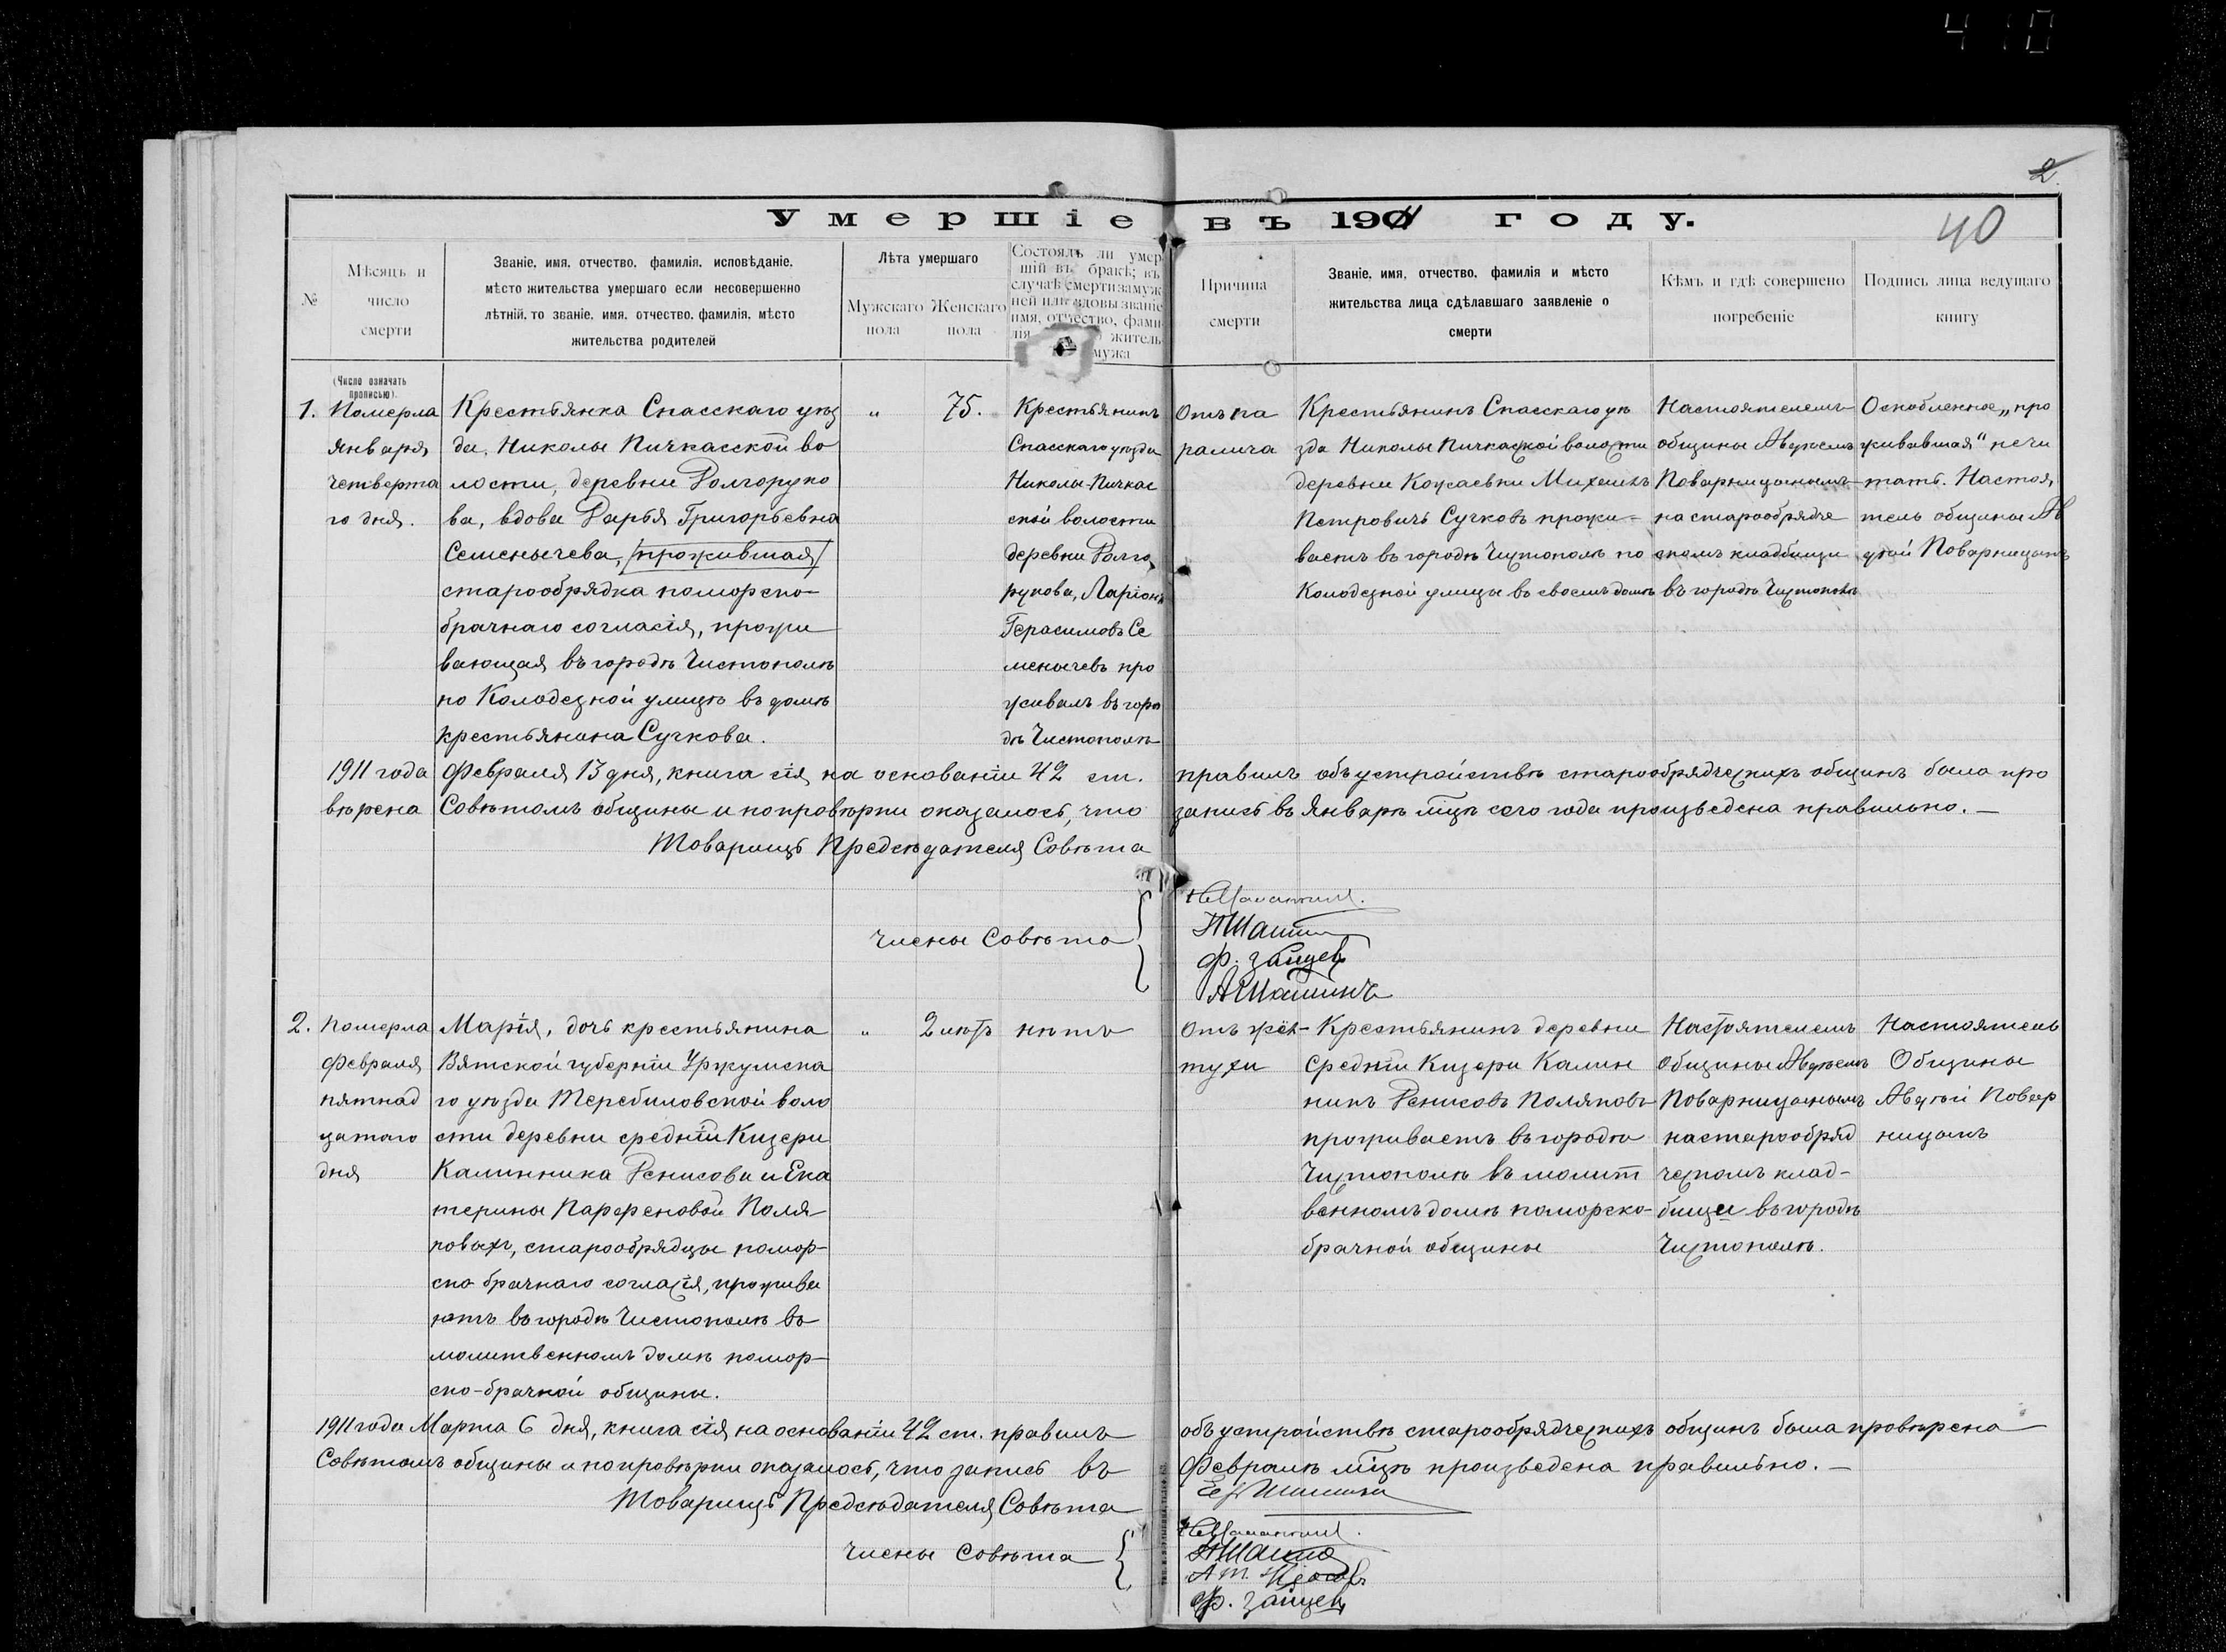 410
2
40
Умершіе въ 1911 году.
№
Мѣсяцъ и
число
смерти
(Число означать
прописью).
Званіе, имя, отчество, фамилія, исповѣданіе,
мѣсто жительства умершаго если несовершенно
лѣтній, то званіе, имя, отчество, фамилія, мѣсто
жительства родителей
Лѣта умершаго
Мужскаго
пола
Женскаго
пола
Состоялъ ли умер
шій въ бракѣ; въ
случаѣ смерти замуж
ней или вдовы званіе
имя, отчество, фами
лія житель
мужа
Причина
смерти
Званіе, имя, отчество, фамилія и мѣсто
жительства лица сдѣлавшаго заявленіе о
смерти
Кѣмъ и гдѣ совершено
погребеніе
Подпись лица ведущаго
книгу
1.
Померла
января
четверта
го дня.
Крестьянка Спасскаго уѣз
да, Николы Пичкасской во
лости, деревни Долгоруко
ва, вдова Дарья Григорьевна
Семенычева, (прожившая)
старообрядка поморско-
брачнаго согласія, прожи
вающая въ городѣ Чистополѣ
по Колодезной улицѣ въ домѣ
крестьянина Сучкова.
"
75.
Крестьянинъ
Спасскаго уѣзда
Николы-Пичкас
ской волости
деревни Долго
рукова, Ларіонъ
Герасимовъ Се
менычевъ про
живалъ въ горо
дѣ Чистополѣ
Отъ па
ралича
Крестьянинъ Спасскаго уѣ
зда Николы Пичкасской волости
деревни Кожаевки Михаилъ
Петровичъ Сучковъ прожи-
ваетъ въ городѣ Чистополѣ по
Колодезной улицы въ своемъ домѣ
Настоятелемъ
общины Авдѣемъ
Поварницынымъ
на старообрядче
скомъ кладбищи
въ городѣ Чистополѣ
Оскобленное „про
живавшая" не чи
тать. Настоя
тель общины Ав
дѣй Поварницынъ
1911 года Февраля 13 дня, книга сія на основаніи 42 ст. правилъ объ устройствѣ старообрядческихъ общинъ была про
вѣрена Совѣтомъ общины и по провѣрки оказалось, что запись въ Январѣ мцѣ сего года произведена правильно. —
Товарищъ Предсѣдателя Совѣта
Члены Совѣта
Ф. Зайцевъ
АШашинъ
2.
Померла
Февраля
пятнад
цатаго
дня
Марія, дочь крестьянина
Вятской губерніи Уржумска
го уѣзда Теребиловской воло
сти деревни средніи Кизери
Калинника Денисова и Ека
терины Парфеновой Поля
ковыхъ, старообрядцы помор-
ско брачнаго согласія, прожива
ютъ въ городѣ Чистополѣ въ
молитвенномъ домѣ помор-
ско-брачной общины.
"
2 лѣтъ
нѣтъ
Отъ жёл-
тухи
Крестьянинъ деревни
Средніи Кизери Калин
никъ Денисовъ Поляковъ
проживаетъ въ городѣ
Чистополѣ въ молит
венномъ домѣ поморско-
брачной общины
Настоятелемъ
общины Авдѣемъ
Поварницынымъ
на старообряд
ческомъ клад-
бищи въ городѣ
Чистополѣ.
Настоятель
Общины
Авдѣй Повар
ницынъ
1911 года Марта 6 дня, книга сія на основаніи 42 ст. правилъ объ устройствѣ старообрядческихъ общинъ была провѣрена
Совѣтомъ общины и по провѣрки оказалось, что запись въ Февралѣ мцѣ произведена правильно. —
Товарищъ Предсѣдателя Совѣта
Члены Совѣта
Ф. Зайцевъ